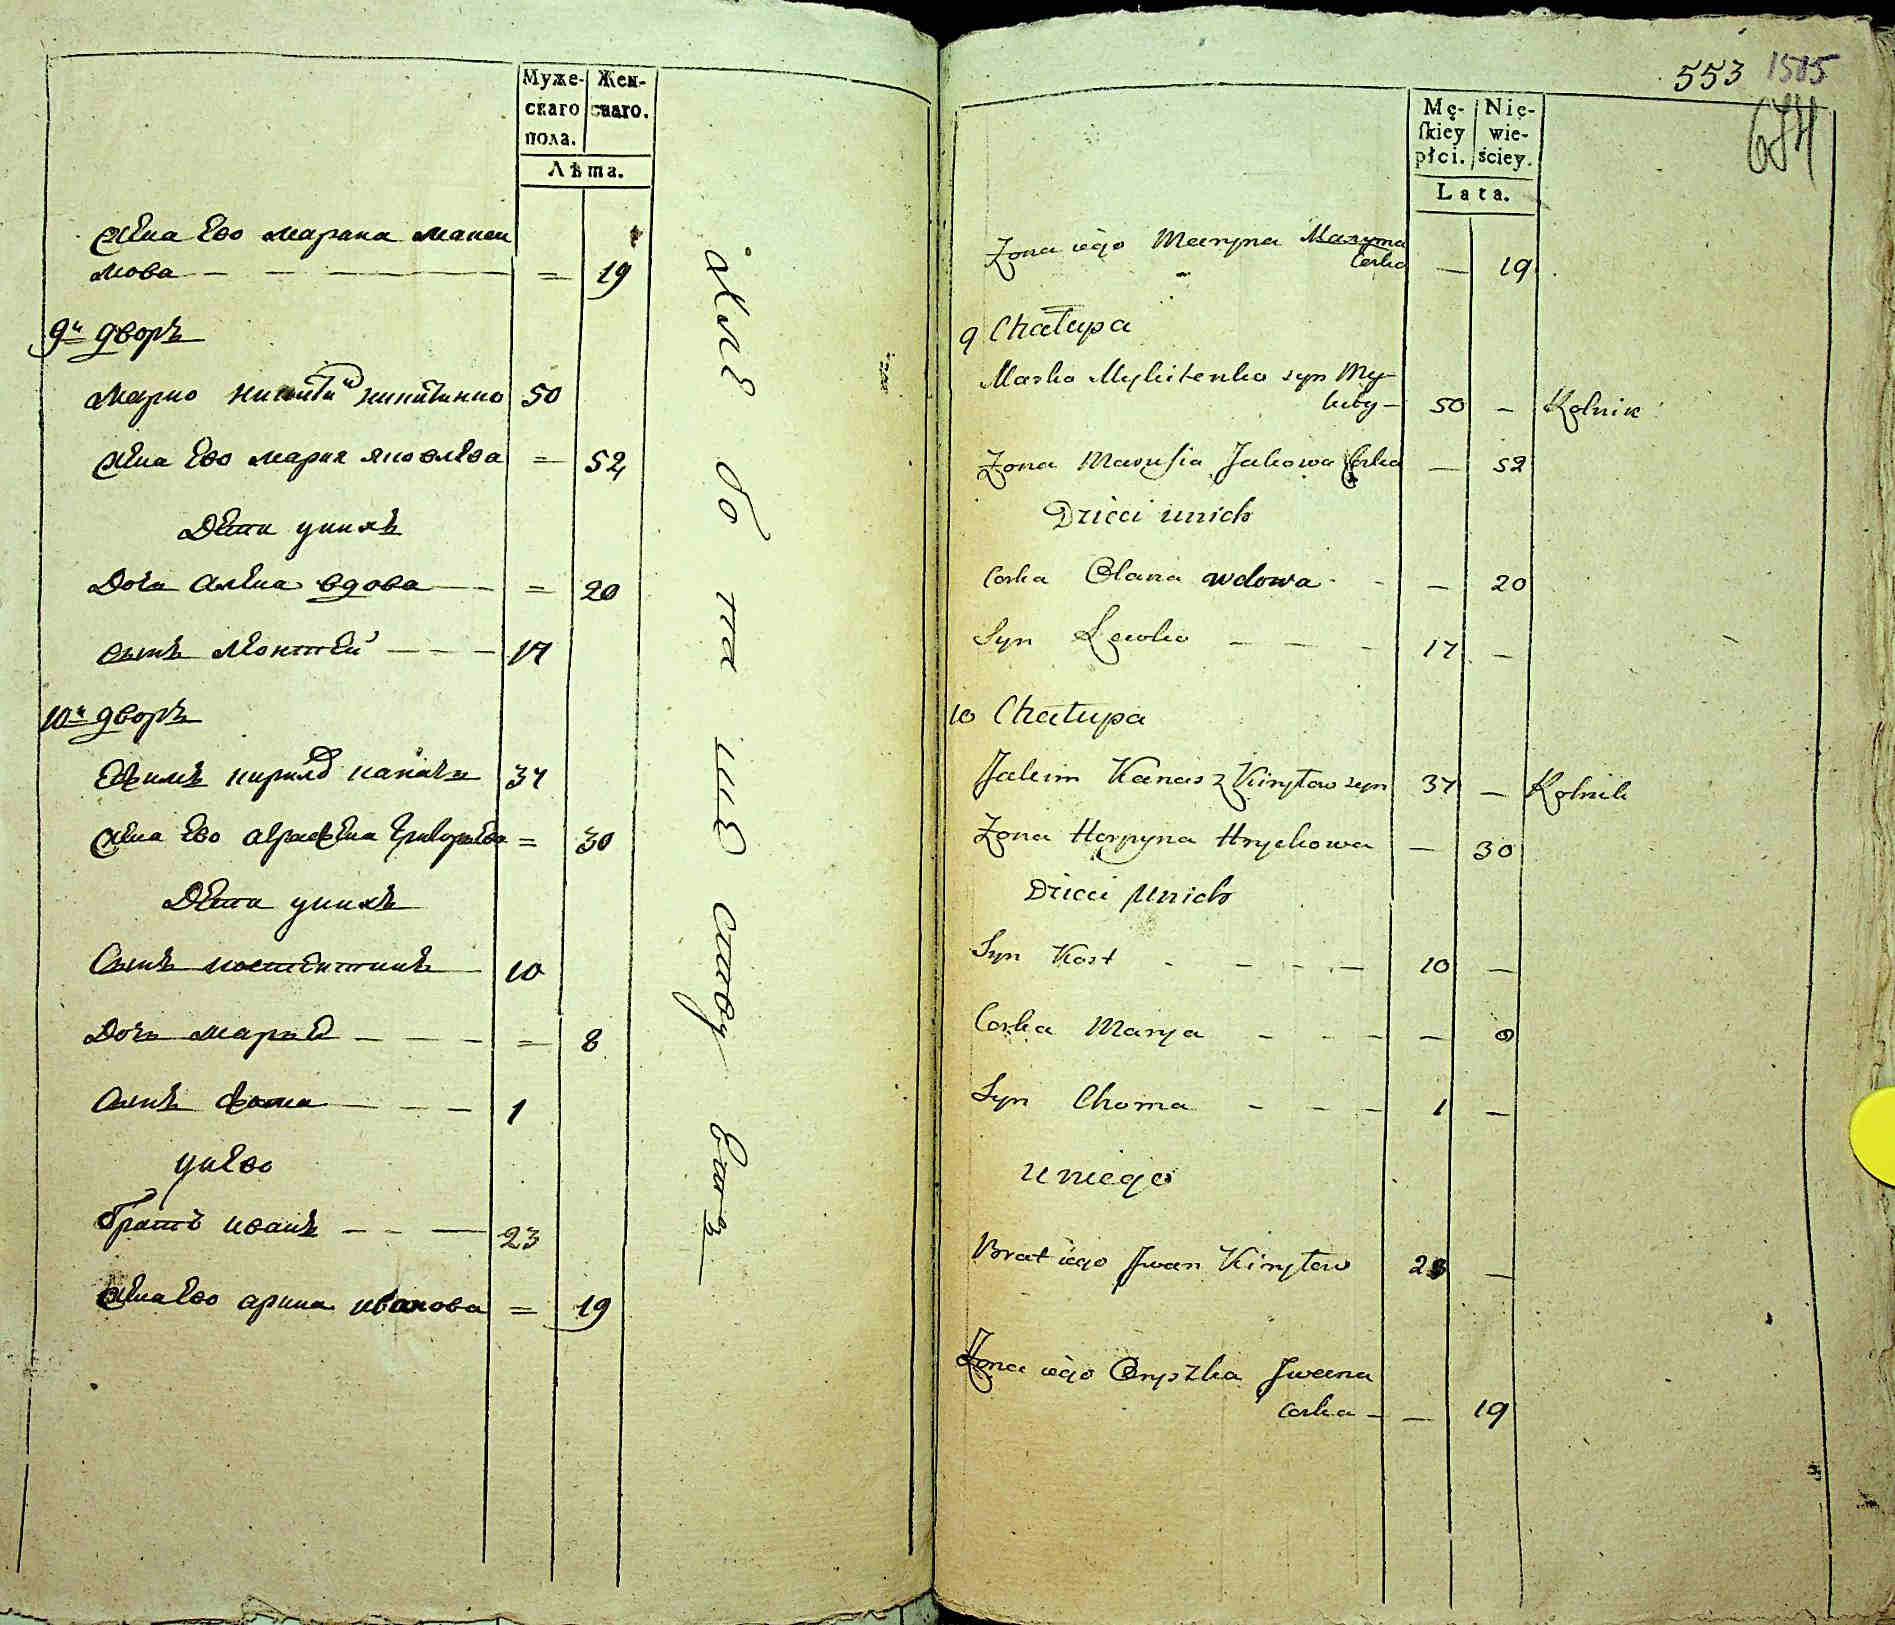 Муже-
скаго
пола.
Жен-
скаго.
Лѣта.
Жена Ево Марина Макси
мова — — — = 19
9й дворъ
Марко Никити Никитинко 50
Жена Ево Мария Яковлева = 52
Дети уних
Дочь Алена вдова — = 20
Сынъ — — — 17
10й дворъ
Екимъ Кирилов Канашъ 37
Жена Ево Аграфена Григорьева = 30
Дети уних
Сынъ Костентинъ — 10
Дочь Марья — — — = 8
Сынъ Фома — — — 1
унево
Братъ Иванъ — — — 23
Жена Ево Арина Иванова = 19
553 1505
674
Mę-
ſkiey
płci.
Nie-
wie-
ściey.
Lata.
Zona iego Maryna Maxyma
Corka — 19
9 Chałupa
Marko Mykitenko syn My-
kity — 50 — Rolnik
Zona Marusia Jakowa Corka — 52
Dzieci unich
Corka Olana wdowa - - — 20
Syn Lewko — — - 17 —
10 Chałupa
Jakim Kanasz Kiryław syn 37 — Rolnik
Zona Horpyna Hryckowa — 30
Dzieci unich
Syn Kost - - - - — 10 —
Corka Marya - - - — 8
Syn Choma - - - 1 —
u niego
Brat iego Jwan Kiryław 23 —
Zona iego Oryszka Jwana
Corka - — 19